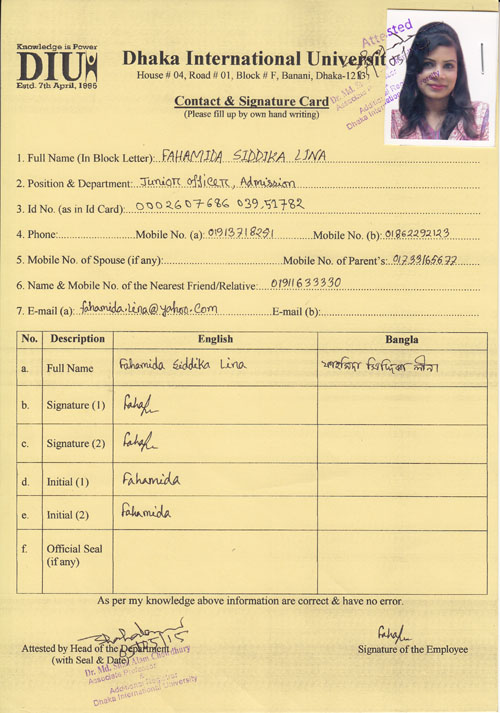 Knowledge is Power
DIU
Estd. 7th April, 1995
Dhaka International Universit
House # 04, Road # 01, Block # F, Banani, Dhaka-1213
Attested
Contact & Signature Card
(Please fill up by own hand writing)
1. Full Name (In Block Letter): FAHAMIDA SIDDIKA LINA
2. Position & Department: Junior officer, Admission
3. Id No. (as in Id Card): 0002607686 039,51782
4. Phone: Mobile No. (a): 01913718251 Mobile No. (b): 01862292123
5. Mobile No. of Spouse (if any): Mobile No. of Parent's: 01739165672
6. Name & Mobile No. of the Nearest Friend/Relative: 01911633330
7. E-mail (a): fahamida.lina@yahoo.com E-mail (b):
No. Description English Bangla
a. Full Name Fahamida Siddika Lina ফাহমিদা সিদ্দিকা লীনা
b. Signature (1)
c. Signature (2)
d. Initial (1) Fahamida
e. Initial (2) Fahamida
f. Official Seal
(if any)
As per my knowledge above information are correct & have no error.
Attested by Head of the Department
(with Seal & Date)
Signature of the Employee
Dr. Md. Shah Alam Chowdhury
Associate Professor
&
Additional Registrar
Dhaka International University